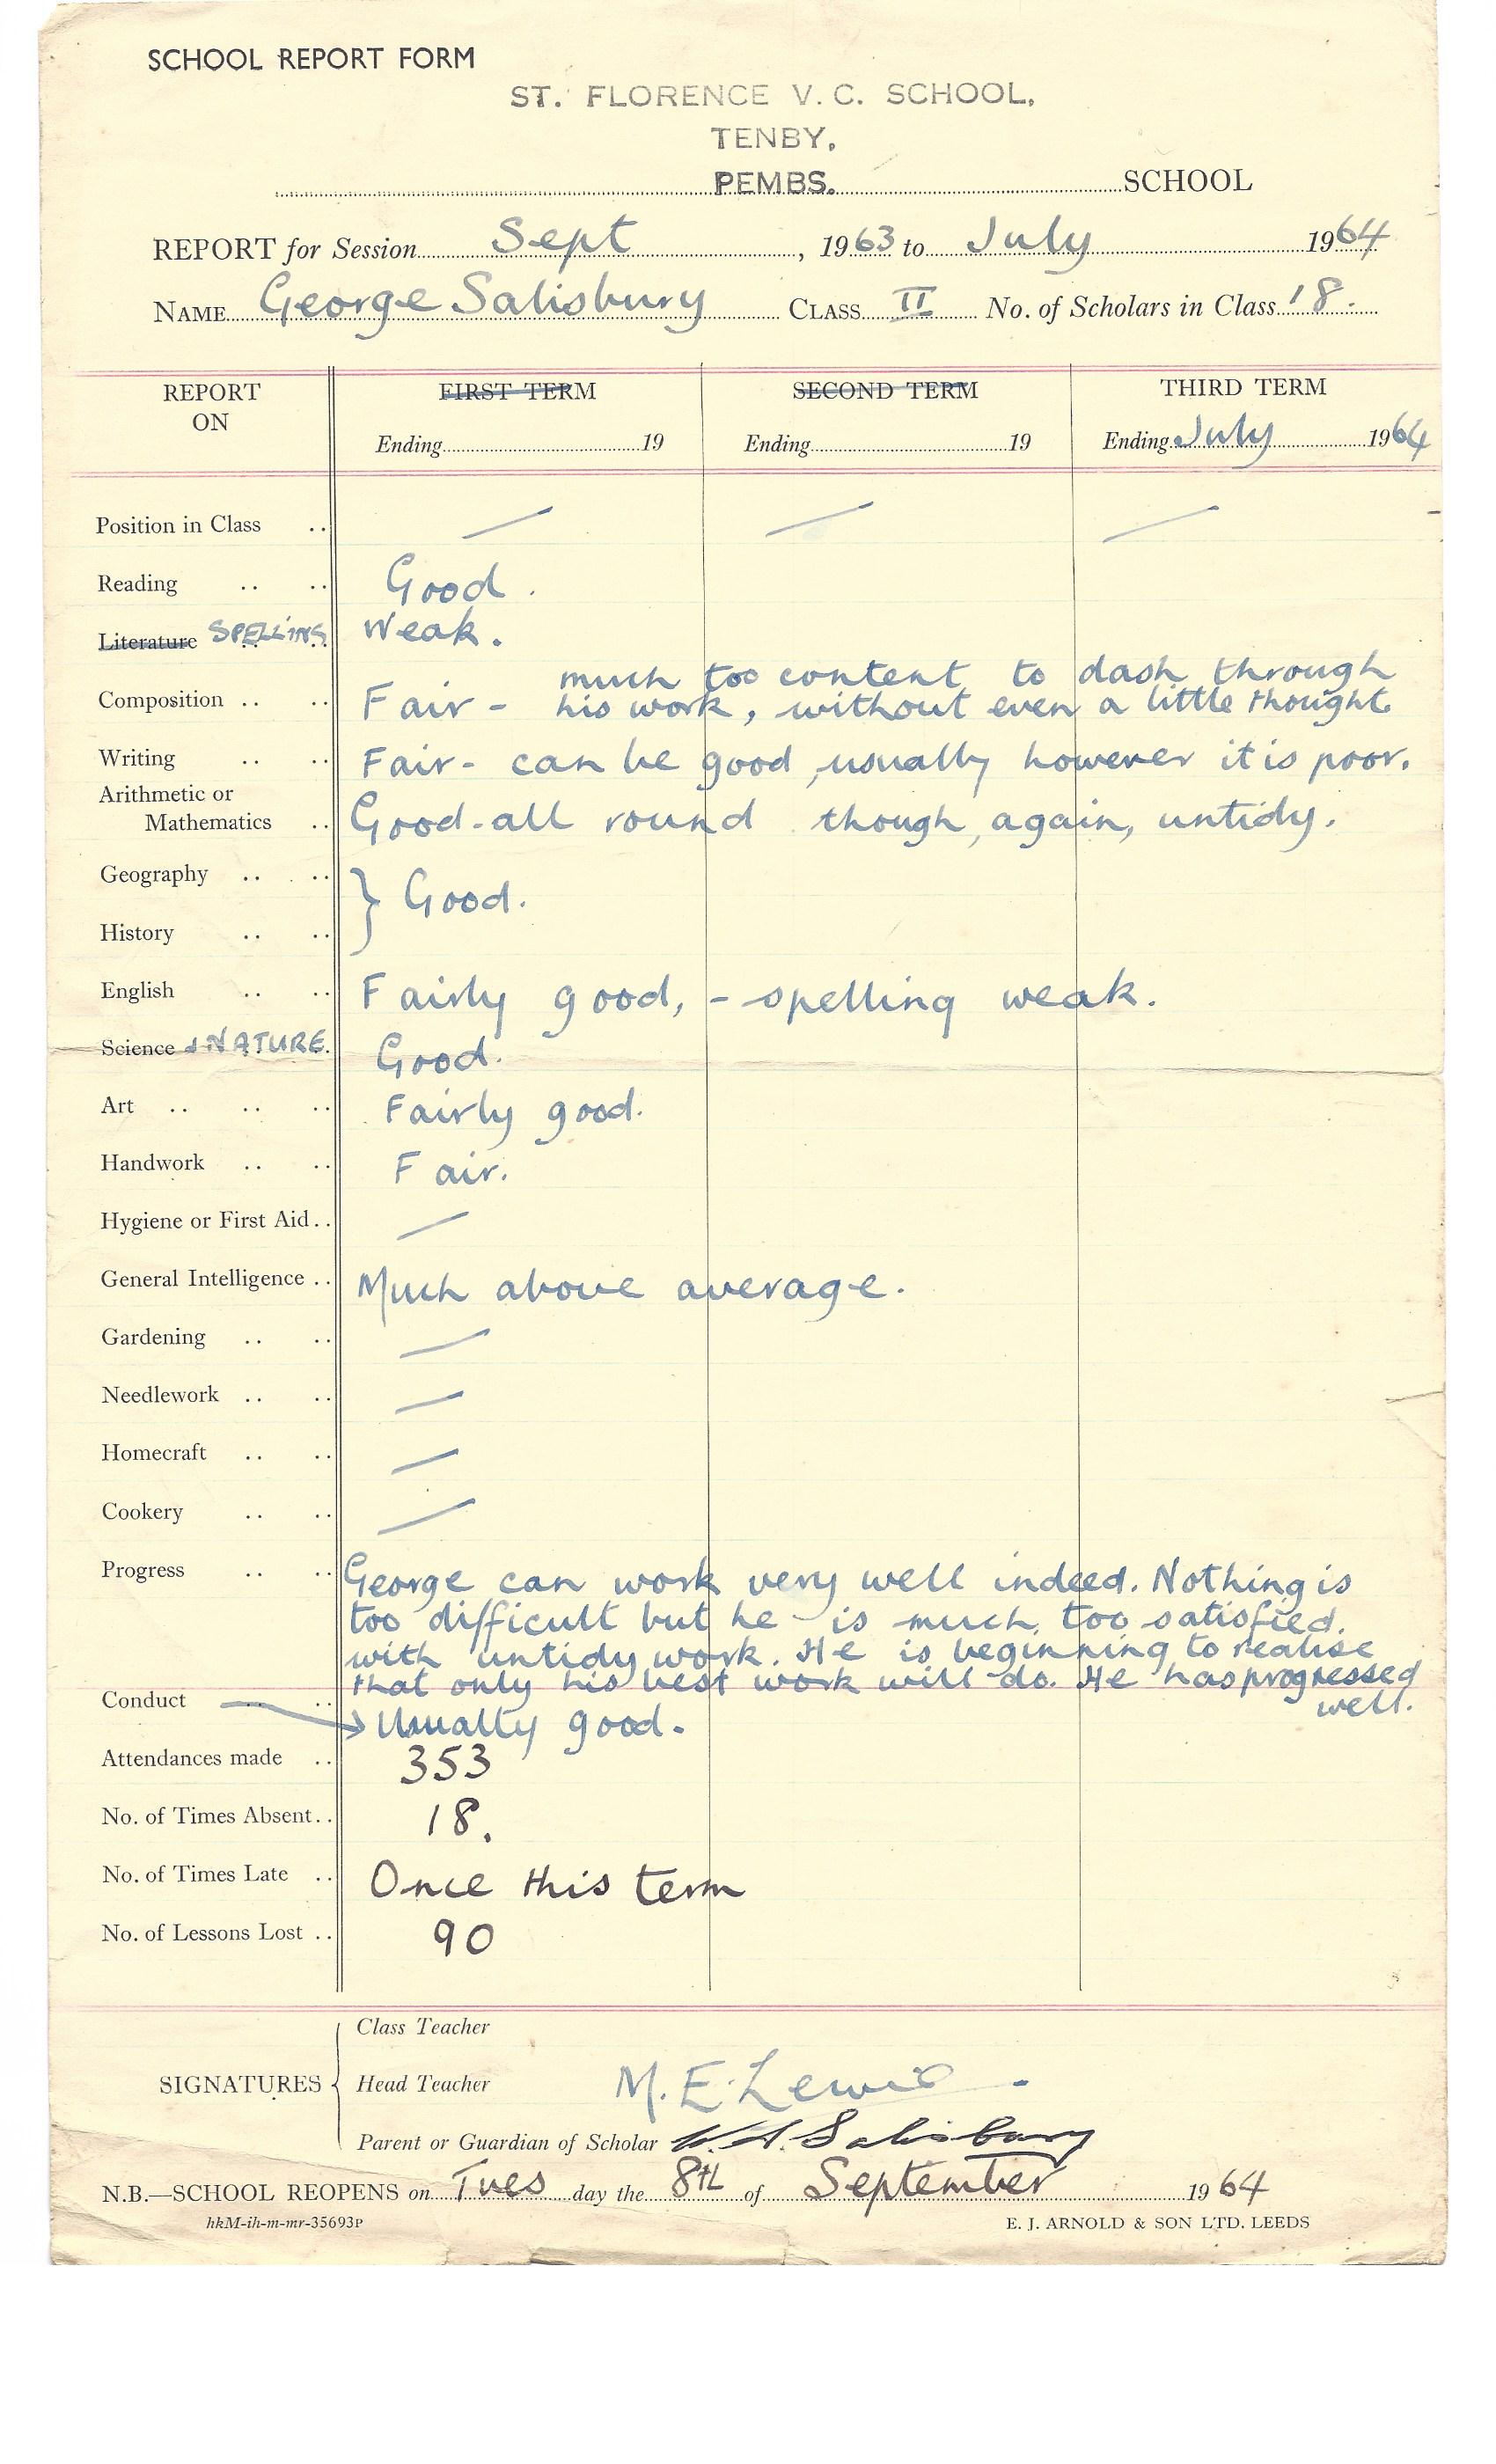 SCHOOL REPORT FORM
ST. FLORENCE V. C. SCHOOL,
TENBY,
PEMBS. SCHOOL
REPORT for Session Sept, 1963 to July 1964
NAME George Salisbury CLASS II No. of Scholars in Class 18.
REPORT ON
FIRST TERM SECOND TERM THIRD TERM
Ending 19 Ending 19 Ending July 1964
Position in Class .. — — —
Reading .. .. Good.
Literature SPELLING .. .. Weak.
much too content to dash through
Composition .. .. Fair - his work, without even a little thought.
Writing .. .. Fair - can be good, usually however it is poor.
Arithmetic or
Mathematics .. Good - all round though, again, untidy.
Geography .. ..
} Good.
History .. ..
English .. .. Fairly good, - spelling weak.
Science & NATURE. Good.
Art .. .. .. Fairly good.
Handwork .. .. Fair.
Hygiene or First Aid .. —
General Intelligence .. Much above average.
Gardening .. .. —
Needlework .. .. —
Homecraft .. .. —
Cookery .. .. —
Progress .. .. George can work very well indeed. Nothing is
too difficult but he is much too satisfied
with untidy work. He is beginning to realise
that only his best work will do. He has progressed
well.
Conduct .. Usually good.
Attendances made .. 353
No. of Times Absent .. 18.
No. of Times Late .. Once this term
No. of Lessons Lost .. 90
Class Teacher
SIGNATURES { Head Teacher M. E. Lewis
Parent or Guardian of Scholar Salisbury
N.B.—SCHOOL REOPENS on Tues day the 8th of September 1964
hkM-ih-m-mr-35693P E. J. ARNOLD & SON LTD. LEEDS